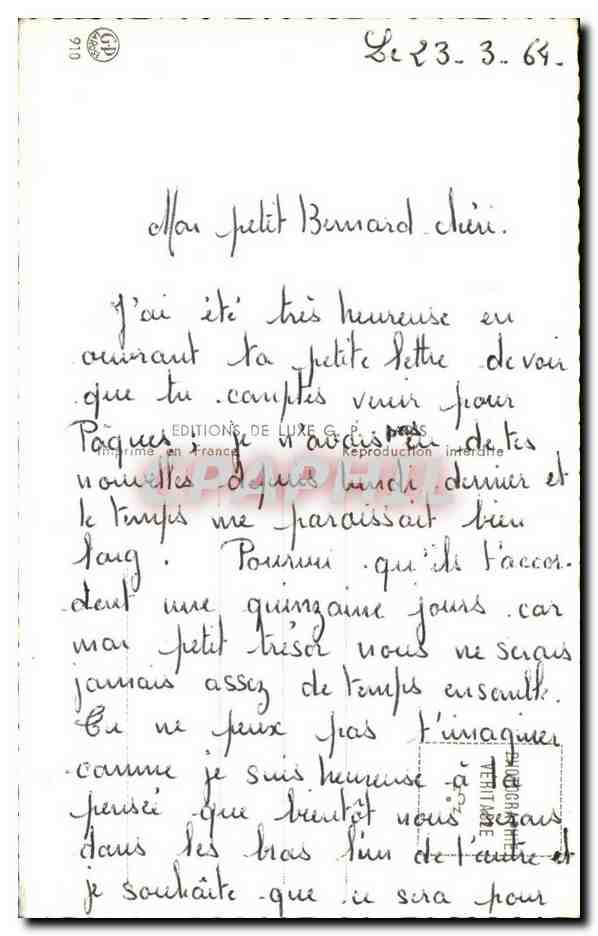 910
Le 23- 3- 64-
Mon petit Bernard chéri.
J'ai été très heureuse en
ouvrant ta petite lettre de voir
que tu comptes venir pour
EDITIONS DE LUXE G. P.
Pâques ; je n'avais pas eu de tes
Imprimé en France Reproduction interdite
CPAPHIL
nouvelles depuis lundi dernier et
le temps me paraissait bien
long. Pourvu qu'ils t'accor-
dent une quinzaine jours car
mon petit trésor nous ne serons
jamais assez de temps ensemble.
Tu ne peux pas t'imaginer
comme je suis heureuse à la
pensée que bientôt nous serons
dans les bras l'un de l'autre et
je souhaite que ce sera pour
PHOTOGRAPHIE
VERITABLE